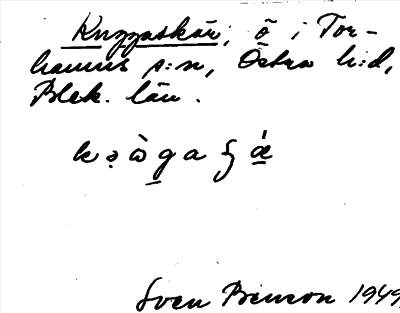 Knggaskär, ö i Tor-
hamns s:n, Östra h:d,
Blek. län.
Sven Benson 1949